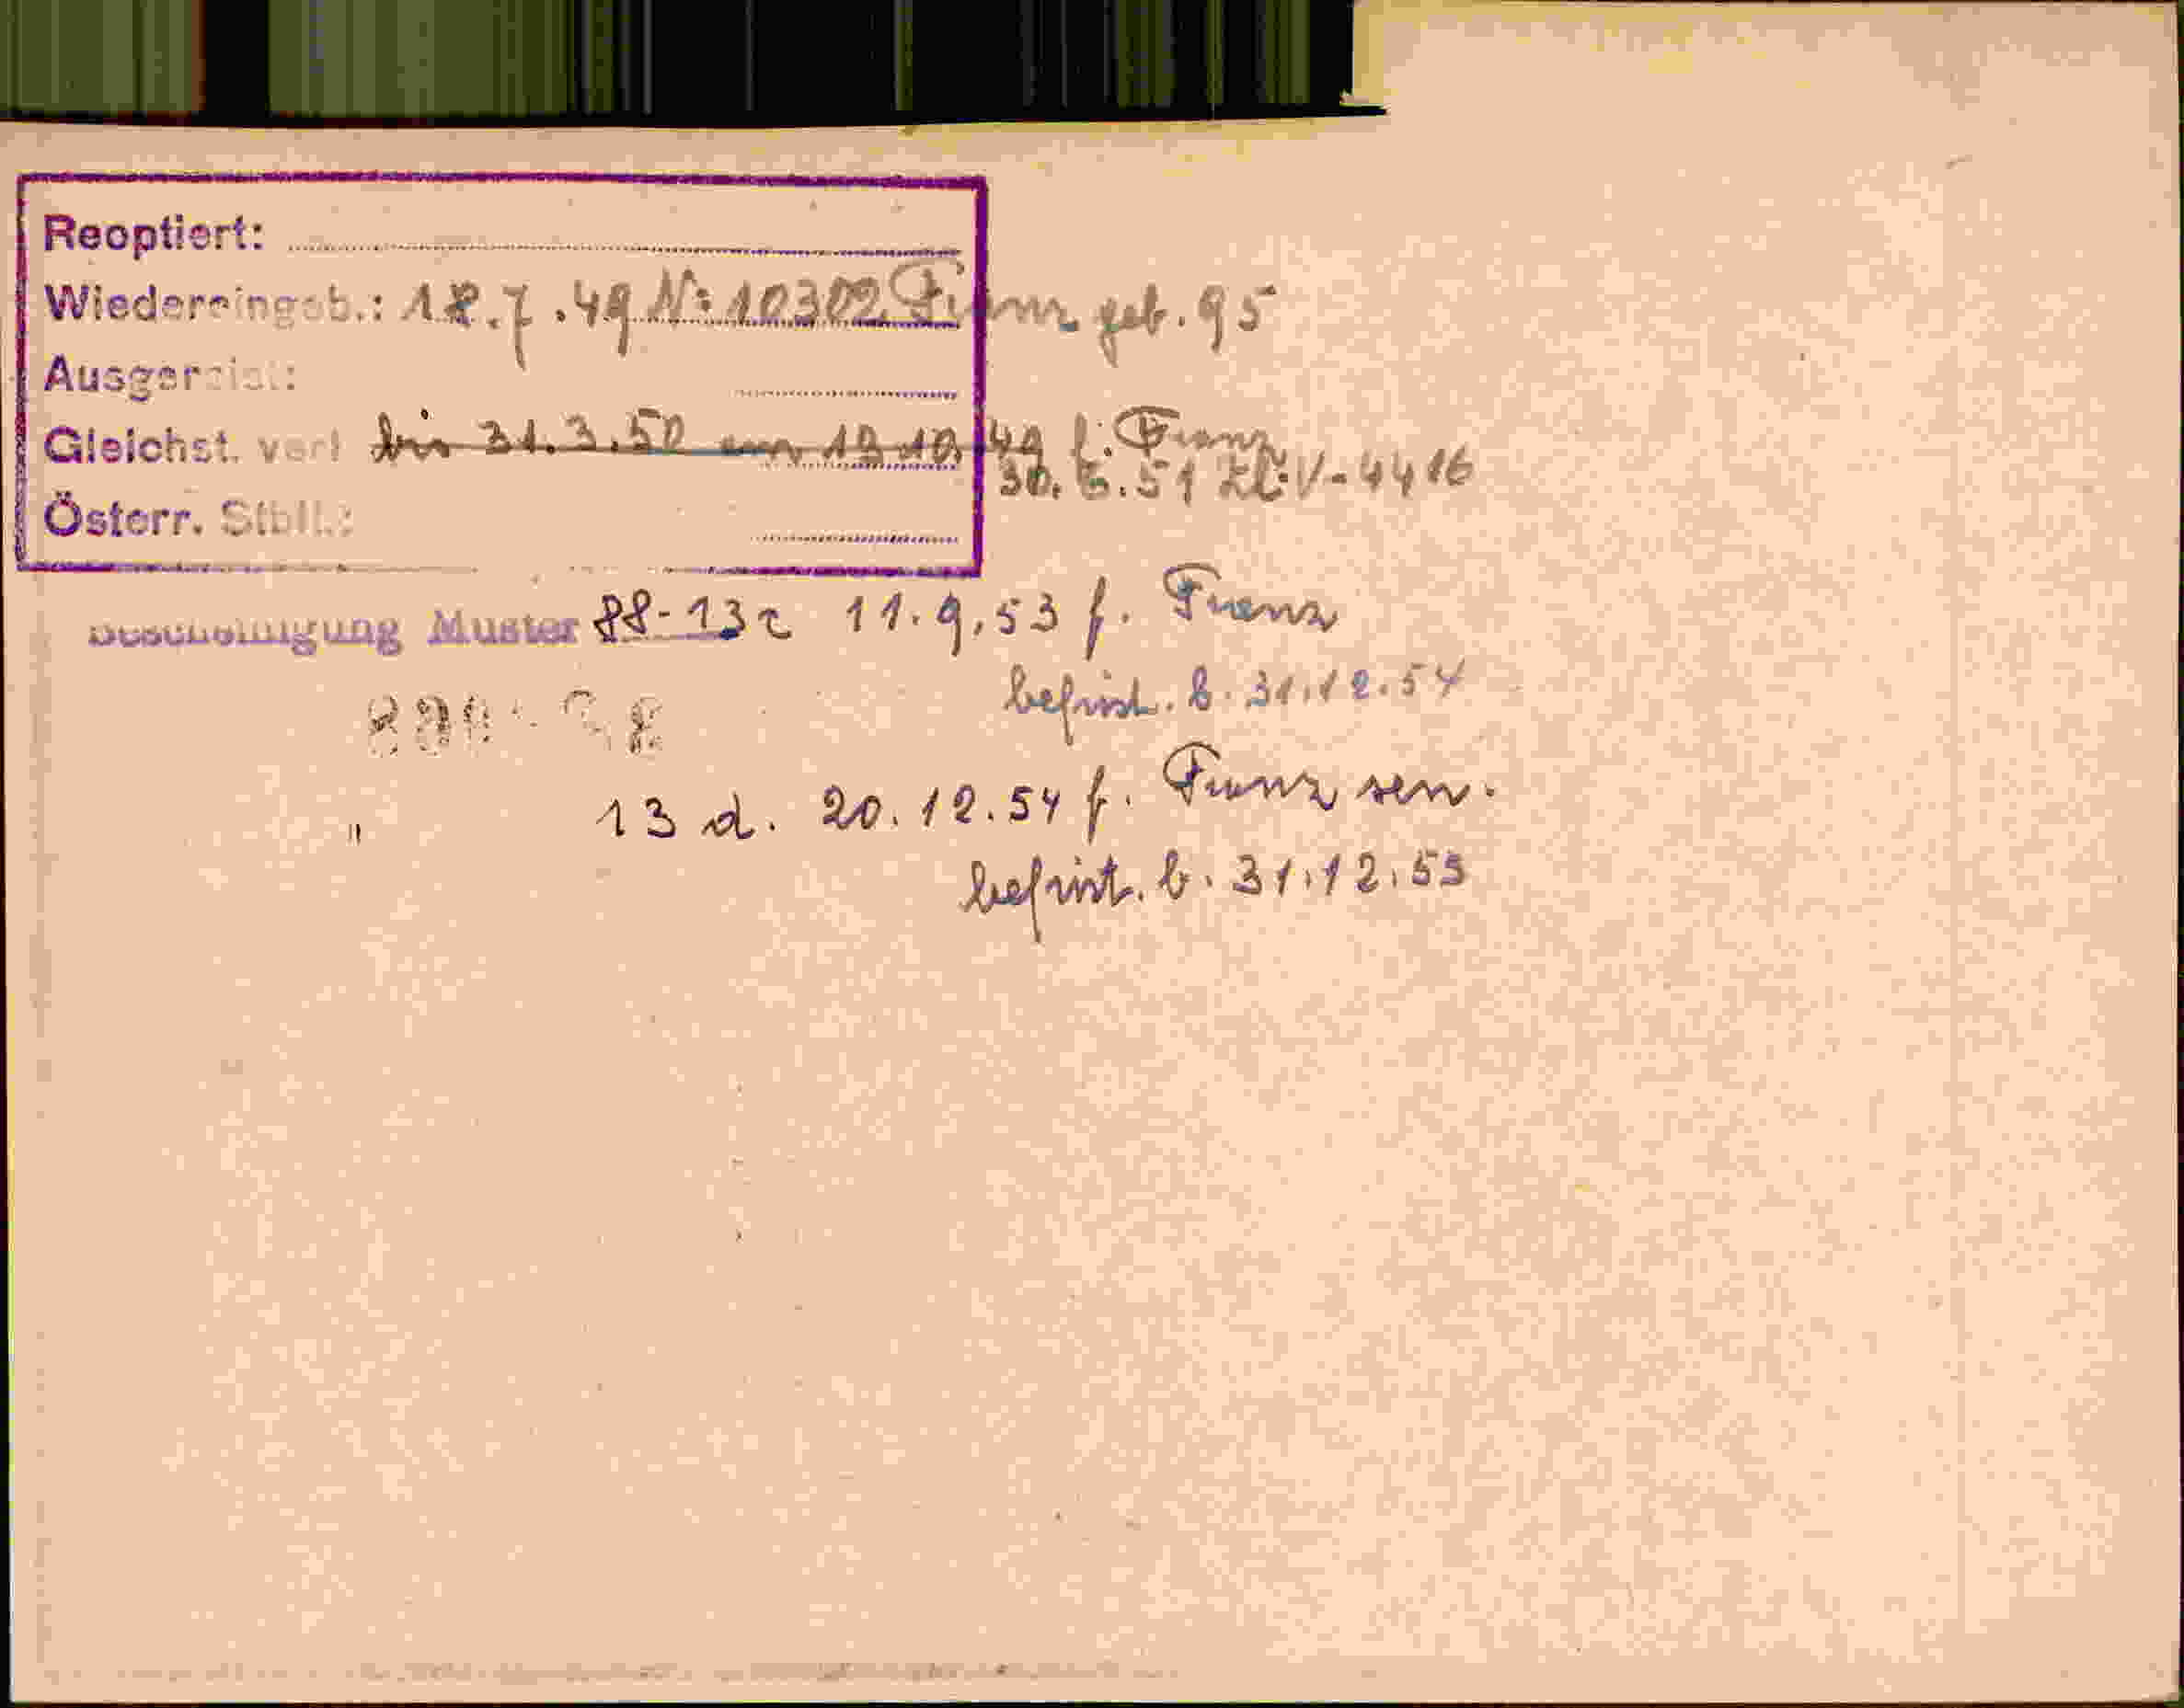 Reoptiert:
Wiedereingeb.: 18.7.49 N: 10302 Franz geb. 95
Ausgereist:
Gleichst. verl bis 31.3.50 am 19.10.49 f. Franz
30.6.51 Zl: V-4416
Österr. Stbll.:
Bescheinigung Muster 88-13c 11.9.53 f. Franz
befrist. b. 31.12.54
" 13 d. 20.12.54 f. Franz sen.
befrist. b. 31.12.55